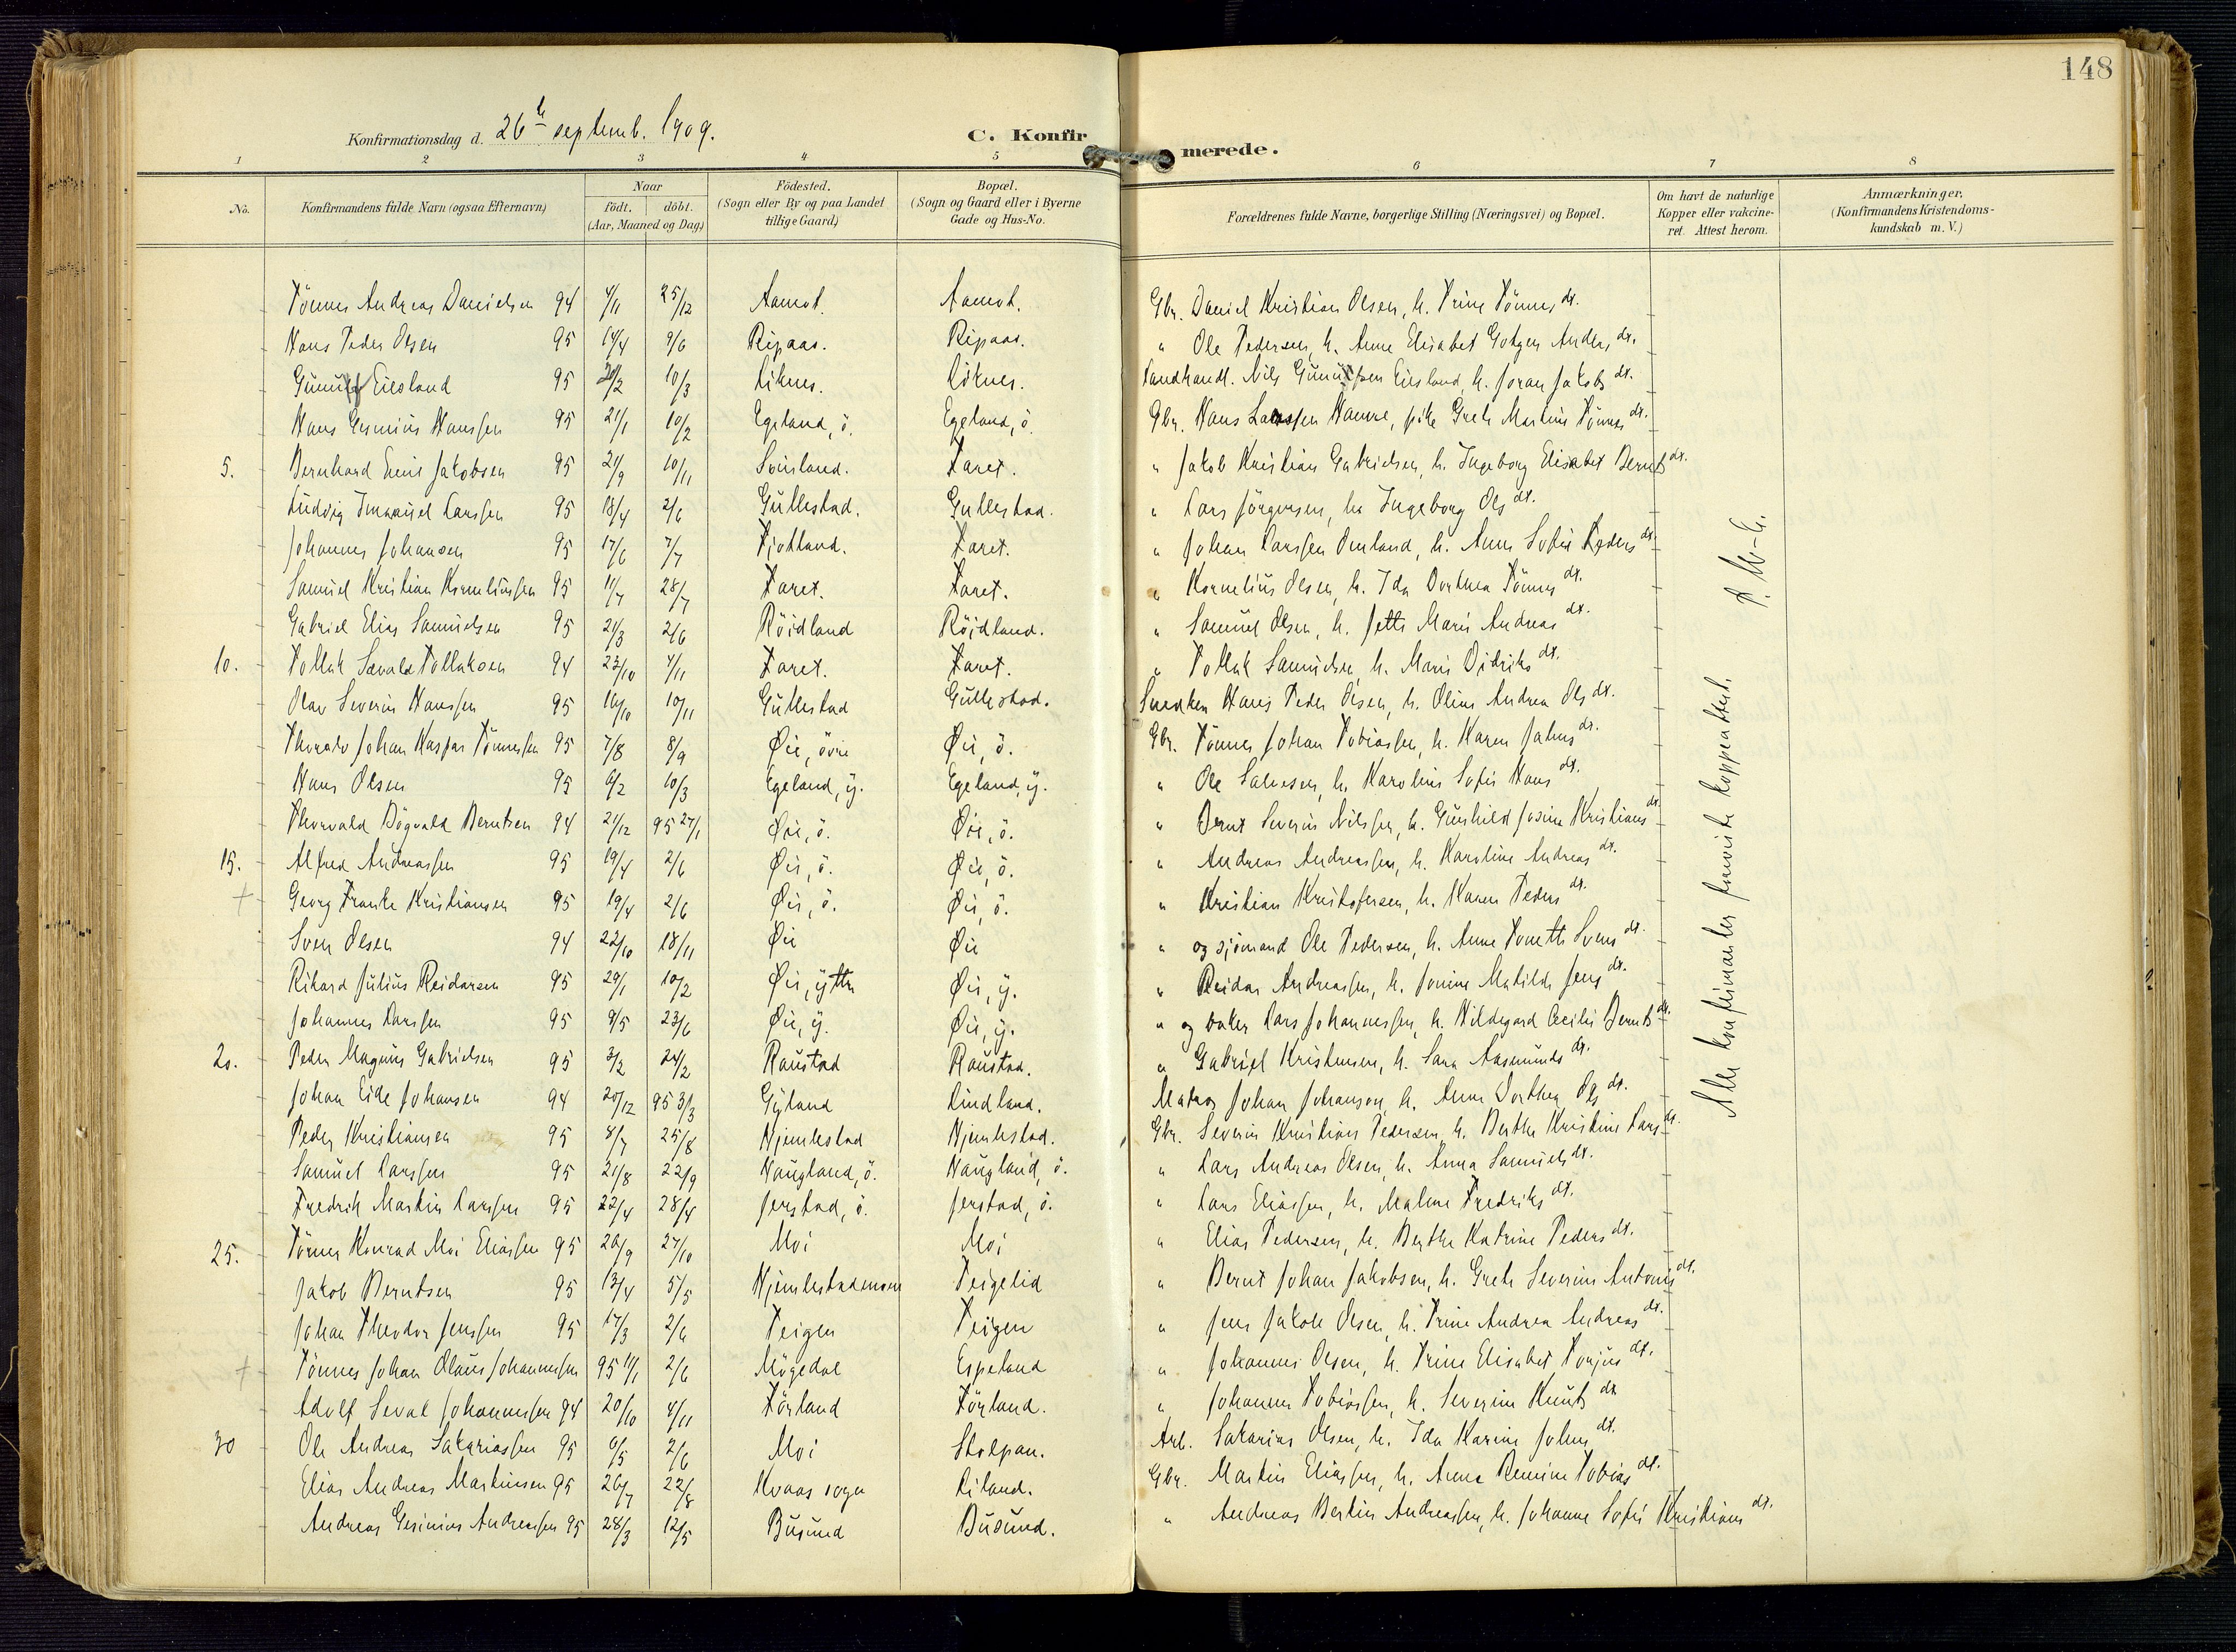 148
Konfirmationsdag d. 26de septemb. 1909.
C. Konfirmerede.
1 2 3 4 5 6 7 8
No.
Konfirmandens fulde Navn (ogsaa Efternavn)
Naar
födt. döbt.
(Aar, Maaned og Dag)
Födested.
(Sogn eller By og paa Landet
tillige Gaard)
Bopæl.
(Sogn og Gaard eller i Byerne
Gade og Hus-No.
Forældrenes fulde Navne, borgerlige Stilling (Næringsvei) og Bopæl.
Om havt de naturlige
Kopper eller vakcine-
ret. Attest herom.
Anmærkninger.
(Konfirmandens Kristendoms-
kundskab m. V.)
Tönnes Andreas Danielsen 94 4/11 25/12 Aamot. Aamot. Gbr. Daniel Kristian Olsen, h. Trine Tönnesdt.
Hans Peder Olsen 95 14/4 9/6 Ripaas. Ripaas. " Ole Pedersen, h. Anne Elisabet Andersdt.
Eiesland 95 10/3 Liknes. Liknes. Landhandl. Nils Eiesland, h. Joran Jakobsdt.
Hans Hanssen 95 21/1 10/2 Egeland, ö. Egeland, ö. Gbr. Hans Larssen Hamre, pike Grete Martine Tönnesdt.
5. Bernhard Emil Jakobsen 95 21/9 10/11 Svinland. Faret. " Jakob Kristian Gabrielsen, h. Ingeborg Elisabet Berntsdt.
Ludvig Immanuel Larssen 95 18/4 2/6 Gullestad. Gullestad. " Lars Jörgensen, h. Ingeborg Olsdt.
Johannes Johansen 95 17/6 7/7 Fjotland. Faret. " Johan Larssen Omland, h. Anne Sofie Pedersdt.
Samuel Kristian Korneliussen 95 11/7 28/7 Faret. Faret. " Kornelius Olsen, h. Ida Dorthea Tönnesdt.
Gabriel Elias Samuelsen 95 21/3 2/6 Röidland Röidland. " Samuel Olsen, h. Jette Marie Andreasdt.
10. Tollak Sevald Tollaksen 94 23/10 4/11 Faret. Faret. " Tollak Samuelsen, h. Marie Didriksdt.
Olav Severin Hanssen 95 16/10 10/11 Gullestad Gullestad. Snedker Hans Peder Olsen, h. Oline Andrea Olsdt.
Thoralv Johan Kaspar Tönnessen 95 7/8 8/9 Øie, övre Øie, ö. Gbr. Tönnes Johan Tobiassen, h. Karen Jahnsdt.
Hans Olsen 95 6/2 10/3 Egeland, y. Egeland, y. " Ole Salvesen, h. Karoline Sofie Hansdt.
Thorvald Bögvald Berntsen 94 21/12 95 27/1 Øie, ö. Øie, ö. " Bernt Severin Nilssen, h. Gunhild Josine Kristiansdt.
15. Alfred Andreassen 95 19/4 2/6 Øie, ö. Øie, ö. " Andreas Andreassen, h. Karoline Andreasdt.
+ Georg Franke Kristiansen 95 19/4 2/6 Øie, ö. Øie, ö. " Kristian Kristofersen, h. Karen Pedersdt.
Sven Olsen 94 22/10 18/11 Øie Øie " og sjömand Ole Pedersen, h. Anne Tonette Svensdt.
Rikard Julius Reidarsen 95 29/1 10/2 Øie, yttre Øie, y. " Reidar Andreassen, h. Jonine Matilde Jensdt.
Johannes Larssen 95 9/5 23/6 Øie, y. Øie, y. " og baker Lars Johannessen, h. Hildegard Cecilie Berntsdt.
20. Peder Magnus Gabrielsen 95 3/2 24/2 Raustad Raustad. " Gabriel Kristensen, h. Sara Aasmundsdt.
Johan Eide Johansen 94 20/12 95 3/3 Gyland Lindland. Matros Johan Johanson, h. Anne Dorthea Olsdt.
Peder Kristiansen 95 8/7 25/8 Njemlestad Njemlestad. Gbr. Severin Kristian Pedersen, h. Berthe Kristine Larsdt.
Samuel Larssen 95 21/8 22/9 Haugland, ö. Haugland, ö. " Lars Andreas Olsen, h. Anna Samuelsdt.
Fredrik Martin Larssen 95 22/4 28/4 Jerstad, ö. Jerstad, ö. " Lars Eliassen, h. Malene Fredriksdt.
25. Tönnes Konrad Moi Eliassen 95 20/9 27/10 Moi Moi " Elias Pedersen, h. Berthe Katrine Pedersdt.
Jakob Berntsen 95 13/4 5/5 Njemlestadmoen Teigelid " Bernt Johan Jakobsen, h. Grete Severine Antonsdt.
Johan Theodor Jenssen 95 17/3 2/6 Teigen Teigen " Jens Jakob Olsen, h. Trine Andrea Andreasdt.
+ Tönnes Johan Olaus Johannessen 95 11/1 2/6 Mögedal Espeland " Johannes Olsen, h. Trine Elisabet Torjusdt.
Adolf Seval Johannessen 94 20/10 4/11 Förland Förland. " Johannes Tobiassen, h. Severine Knutsdt
30 Ole Andreas Sakariassen 95 6/5 2/6 Moi Stolpan. Arb. Sakarias Olsen, h. Ida Karine Johnsdt.
Elias Andreas Martinsen 95 26/7 22/8 Kvaas sogn Liland. Gbr. Martin Eliassen, h. Anne Tobiasdt.
Andreas Gesinius Andreassen 95 28/3 12/5 Busund Busund. " Andreas Bertin Andreassen, h. Johanne Sofie Kristiansdt.
Alle konfirmanter foreviste koppeattest.